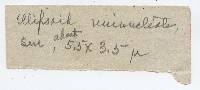 Ellipsoid uninucleate,
about
5.5 x 3.5 µ